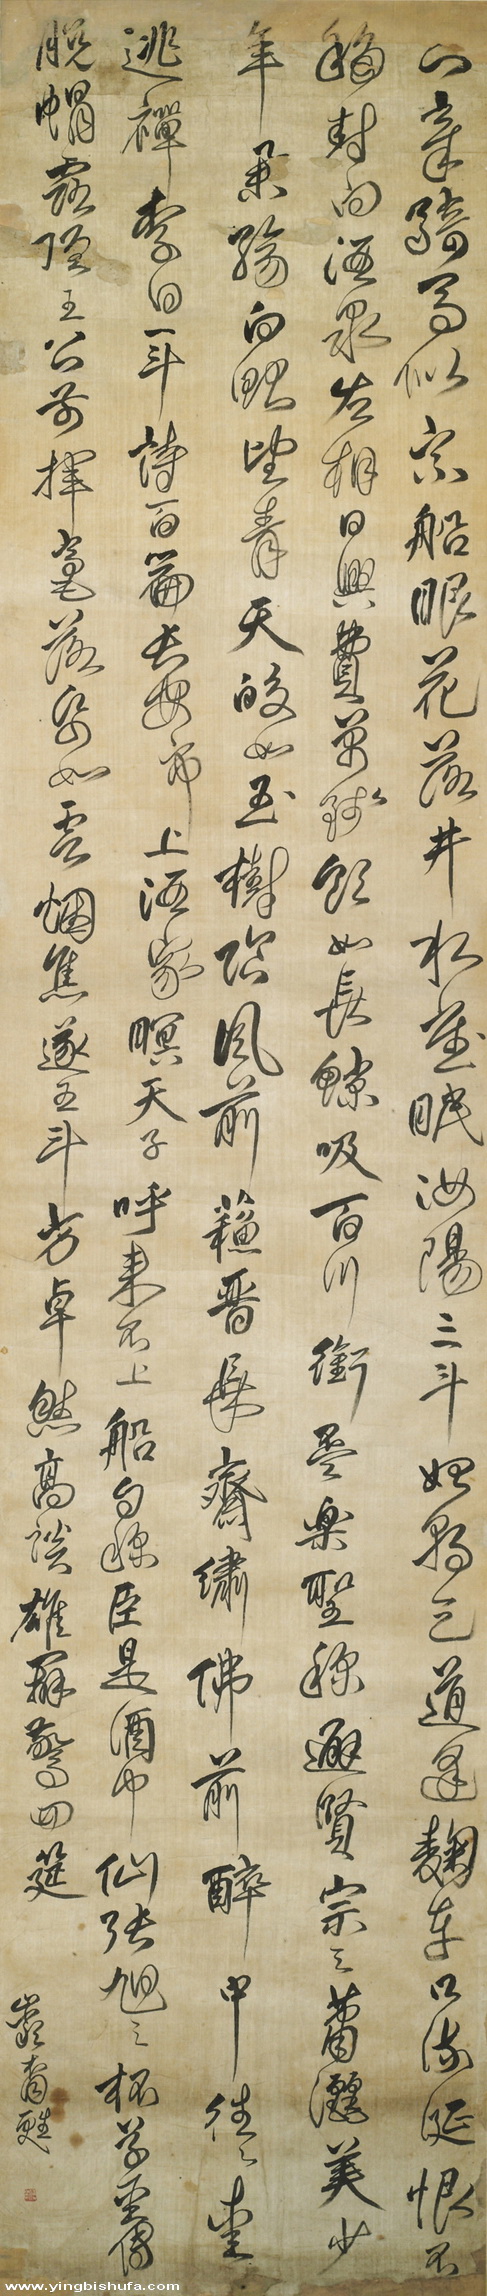 知章騎馬似乘船眼花落井水底眠汝陽三斗始朝天道逢麴車口流涎恨不
移封向酒泉左相日興費萬錢飲如長鯨吸百川銜盃樂聖稱避賢宗之蕭灑美少
年舉觴白眼望青天皎如玉樹臨風前蘇晉長齋繡佛前醉中往々愛
逃禪李白一斗詩百篇長安市上酒家眠天子呼来不上船自稱臣是酒中仙張旭三杯草聖傳
脫帽露頂王公前揮毫落紙如雲烟焦遂五斗方卓然高談雄辯驚四筵
www.yingbishufa.com